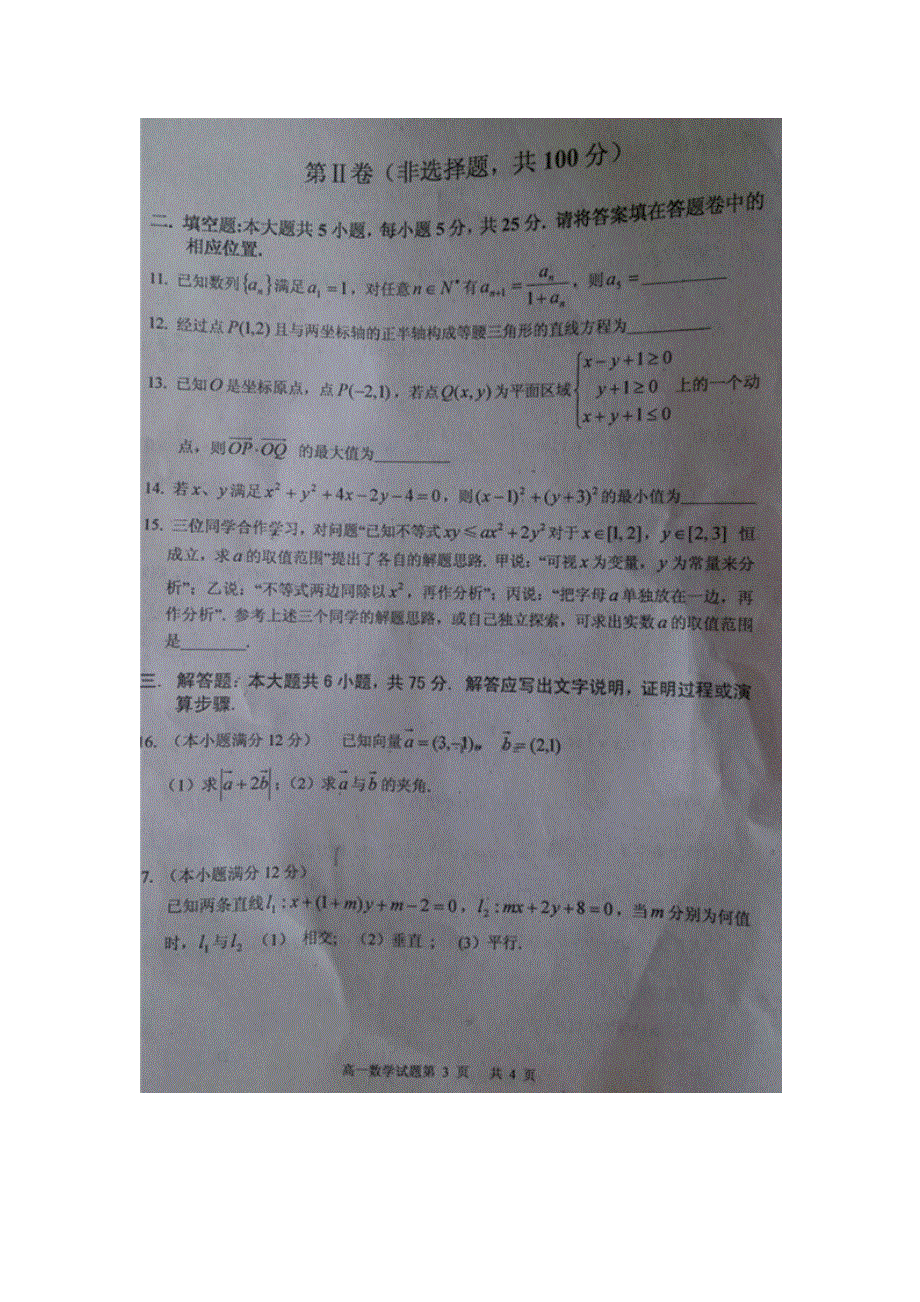 第Ⅱ卷（非选择题，共100分）
二．填空题:本大题共5小题．每小题5分，共25分．请将答案填在答题卷中的
相应位置.
11. 已知数列{aₙ}满足a₁=1，对任意n∈N*有aₙ₊₁=aₙ/(1+aₙ)，则a₅=________
12. 经过点P(1,2)且与两坐标轴的正半轴构成等腰三角形的直线方程为________
13. 已知O是坐标原点，点P(−2,1)，若点Q(x,y)为平面区域{x−y+1≥0 y+1≥0 x+y+1≤0 上的一个动
点，则OP·OQ 的最大值为________
14. 若x、y满足x²+y²+4x−2y−4=0，则(x−1)²+(y+3)²的最小值为________
15. 三位同学合作学习，对问题“已知不等式xy≤ax²+2y²对于x∈[1,2]，y∈[2,3] 恒
成立，求a的取值范围”提出了各自的解题思路. 甲说：“可视x为变量，y为常量来分
析”；乙说：“不等式两边同除以x²，再作分析”；丙说：“把字母a单独放在一边，再
作分析”．参考上述三个同学的解题思路，或自己独立探索，可求出实数a的取值范围
是________.
三．解答题：本大题共6小题，共75分．解答应写出文字说明，证明过程或演
算步骤.
16. （本小题满分12分） 已知向量a=(3,−1)， b=(2,1)
（1）求|a+2b|；（2）求a与b的夹角.
7. （本小题满分12分）
已知两条直线l₁:x+(1+m)y+m−2=0，l₂:mx+2y+8=0，当m分别为何值
时，l₁与l₂ （1） 相交; （2）垂直； （3）平行.
高一数学试题第 3 页 共 4 页